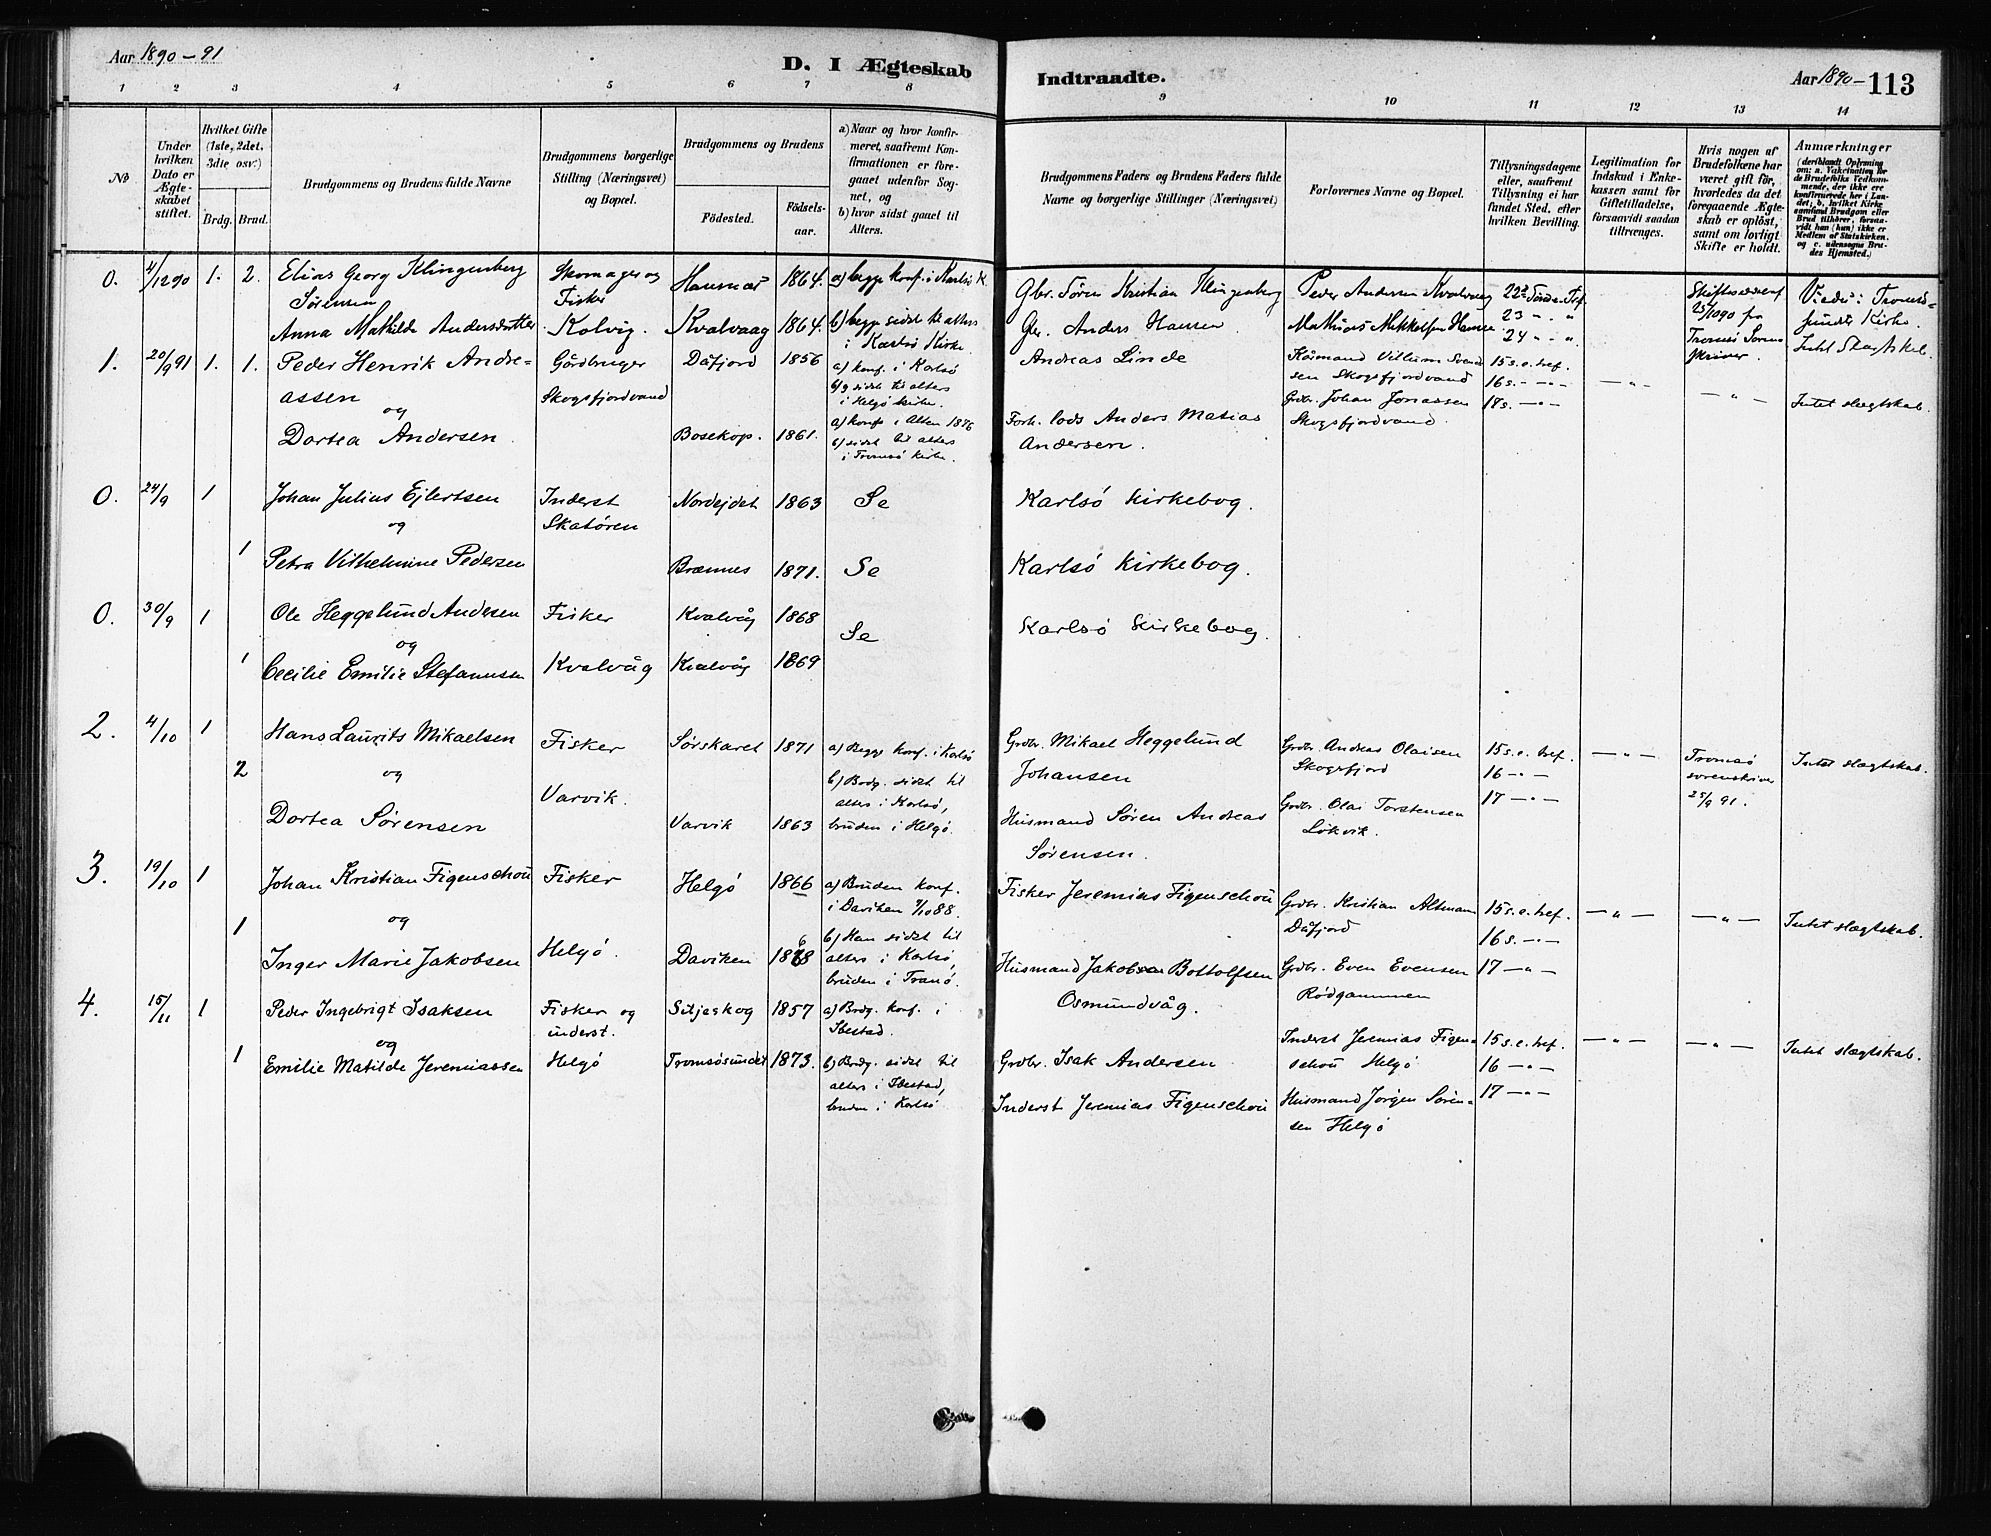 Aar 1890-91
D. I Ægteskab
Indtraadte.
Aar 1890- 113
1 2 3 4 5 6 7 8 9 10 11 12 13 14
No
Under hvilken Dato er Ægteskabet stiftet.
Hvilket Gifte (1ste, 2det, 3die osv.)
Brdg. Brud.
Brudgommens og Brudens fulde Navne
Brudgommens borgerlige Stilling (Næringsvei) og Bopæl.
Brudgommens og Brudens
Fødested.
Fødselsaar.
a) Naar og hvor konfirmeret, saafremt Konfirmationen er foregaaet udenfor Sognet, og
b) hvor sidst gaaet til Alters.
Brudgommens Faders og Brudens Faders fulde Navne og borgerlige Stillinger (Næringsvei)
Forlovernes Navne og Bopæl.
Tillysningsdagene eller, saafremt Tillysning ei har fundet Sted, efter hvilken Bevilling.
Legitimation for Indskud i Enkekassen samt for Giftetilladelse, forsaavidt saadan tiltrænges.
Hvis nogen af Brudefolkene har været gift før, hvorledes da det foregaaende Ægteskab er opløst, samt om lovligt Skifte er holdt.
Anmærkninger
(deriblandt Oplysning om: a. Vakcination for de Brudefolks Vedkommende, der ikke ere konfirmerede her i Landet; b. hvilket Kirkesamfund Brudgom eller Brud tilhører, forsaavidt han (hun) ikke er Medlem af Statskirken, og c. udensogns Brudes Hjemsted.)
0. 4/12 90 1. 2. Elias Georg Klingenberg Sørensen
Skomager og Fisker
1864. a) begge konf. i Karlsö K.
Gbr. Sören Kristian Klingenberg
Peder Andersen Kvalvaag
Anna Mathilde Andersdatter
Kolvig. Kvalvaag 1864. b) begge sidst til alters i Karlsö Kirke.
Gbr. Anders Hansen
23 " "
24 " "
25/10 90 fra Tromsö Sorenskriver
Viede i Tromsösundts Kirke.
Intet Slægtskab.
1. 20/9 91 1. 1. Peder Henrik Andreassen
Gårdbruger Skogsfjordvand
Dåfjord 1856
a) konf. i Karlsö
b) g sidst til alters i Helgö kirke.
Andreas Linde
Skogsfjordvand
15 s. e. tref.
16 s. - " -
18 s. - " -
- " -
- " -
Intet slægtskab.
og
Dortea Andersen
Bosekop. 1861.
a) konf. i Alten 1876
b) sidst til alters i Tromsö kirke.
Forh. lods Anders Matias Andersen.
Grdbr. Johan Jonassen Skogsfjordvand.
0. 24/9 1 Johan Julius Ejlertsen
Inderst Skatören
Nordejdet 1863 Se Karlsö Kirkebog.
og
1 Petra Vilhelmine Pedersen
Brænnes 1871. Se Karlsö Kirkebog.
0. 30/9 1 Ole Heggelund Andesen
Fisker Kvalvåg 1868
Se Karlsö Kirkebog.
og
1 Cecilie Emilie Stefanussen
Kvalvåg Kvalvåg 1869
2. 4/10 1 Hans Laurits Mikaelsen
Fisker Varvik.
Sörskaret 1871
a) Begge konf. i Karlsö
b) Brdg. sidst til alters i Karlsö, bruden i Helgö.
Grdbr. Mikael Heggelund Johansen
Grdbr. Andreas Olaisen Skogsfjord
15 s. e. tref.
16 - " -
17 - " -
- " -
Tromsö sorenskriver 25/9 91.
Intet slægtskab.
2 og
Dortea Sørensen
Varvik 1863
Husmand Sören Andreas Sörensen.
Grdbr. Olai Torstensen Lökvik.
3. 19/10 1 Johan Kristian Figenschou
Fisker Helgö.
Helgö 1866
a) Bruden konf. i Daviken 7/10 88.
b) Han sidst til alters i Karlsö, bruden i Tranö.
Fisker Jeremias Figenschou
Grdbr. Kristian Altmann Dåfjord
15 s. e. tref.
16 s. - " -
17 - " -
- " -
- " -
Intet slægtskab.
1 og
Inger Marie Jakobsen
Daviken
Husmand Jakobsen Bottolfsen Osmundvåg.
Grdbr. Even Evensen Rödgammen
4. 15/11 1 Peder Ingebrigt Isaksen
Fisker og inderst. Helgö
Siljeskog 1857
a) Brdg. konf. i Ibestad.
b) Brdg. sidst til alters i Ibestad, bruden i Karlsö
Grdbr. Isak Andersen
Inderst Jeremias Figenschou Helgö
15 s. e. tref.
16 - " -
17 - " -
- " -
- " -
Intet slægtskab.
og
1 Emilie Matilde Jeremiassen
Tromsösundet 1873.
Inderst Jeremias Figenschou
Husmand Jörgen Sörensen Helgö